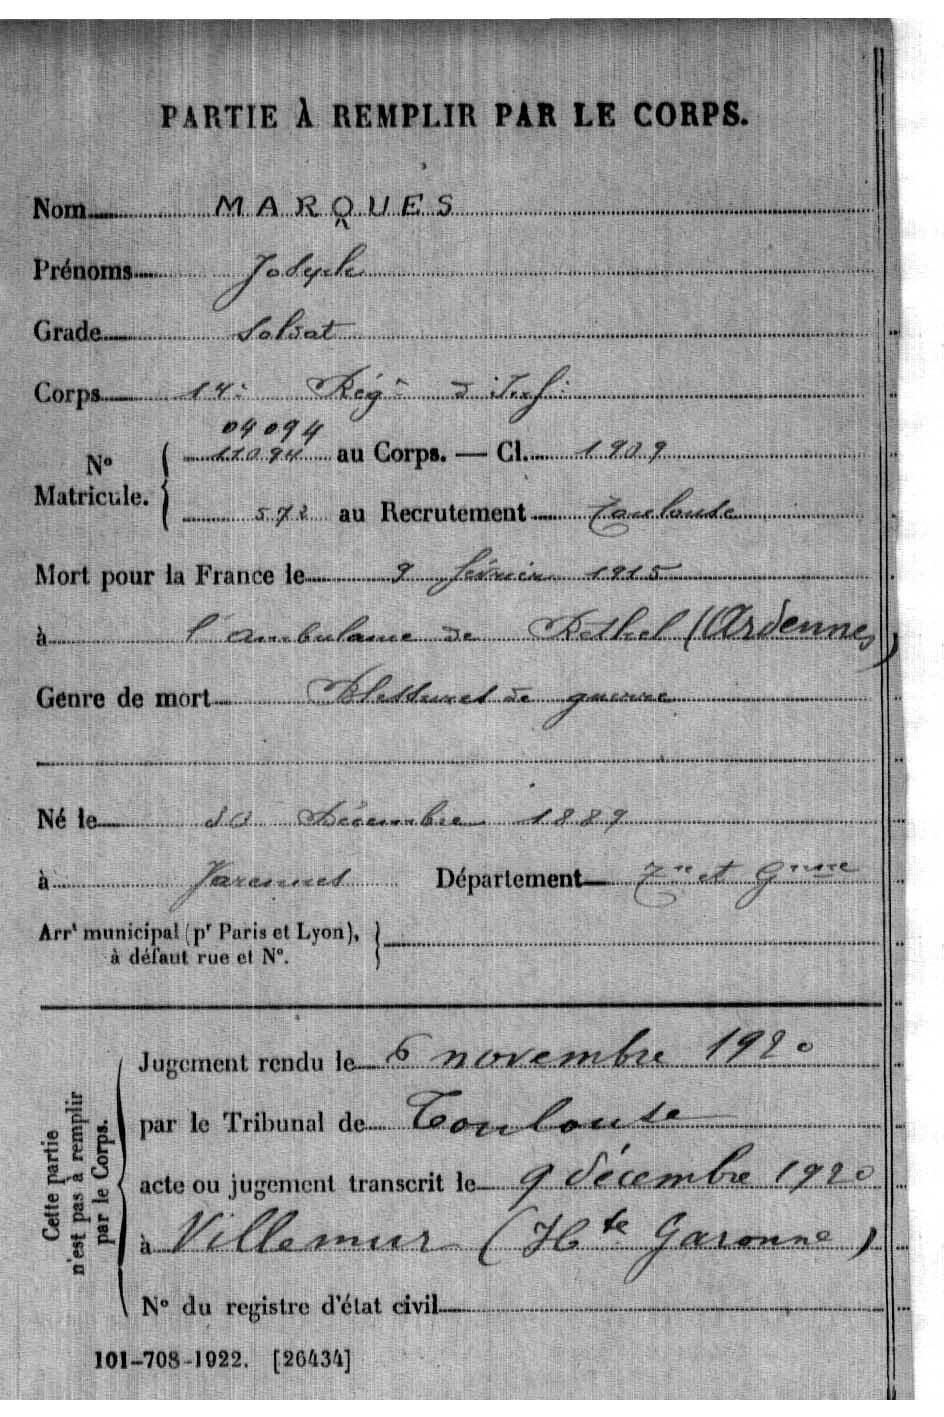 PARTIE À REMPLIR PAR LE CORPS.
Nom MARQUES
Prénoms Joseph
Grade Soldat
Corps 14e Régt d'Inf:
04094
N° Matricule. 11094 au Corps. — Cl. 1909
572 au Recrutement Toulouse
Mort pour la France le 9 février 1915
à l'ambulance de Rethel (Ardennes)
Genre de mort Blessures de guerre
Né le 30 Décembre 1889
à Varennes Département Tn et Gnne
Arrt municipal (pr Paris et Lyon),
à défaut rue et N°.
Cette partie
n'est pas à remplir
par le Corps.
Jugement rendu le 6 novembre 1920
par le Tribunal de Toulouse
acte ou jugement transcrit le 9 décembre 1920
à Villemur (Hte Garonne)
N° du registre d'état civil
101-708-1922. [26434]